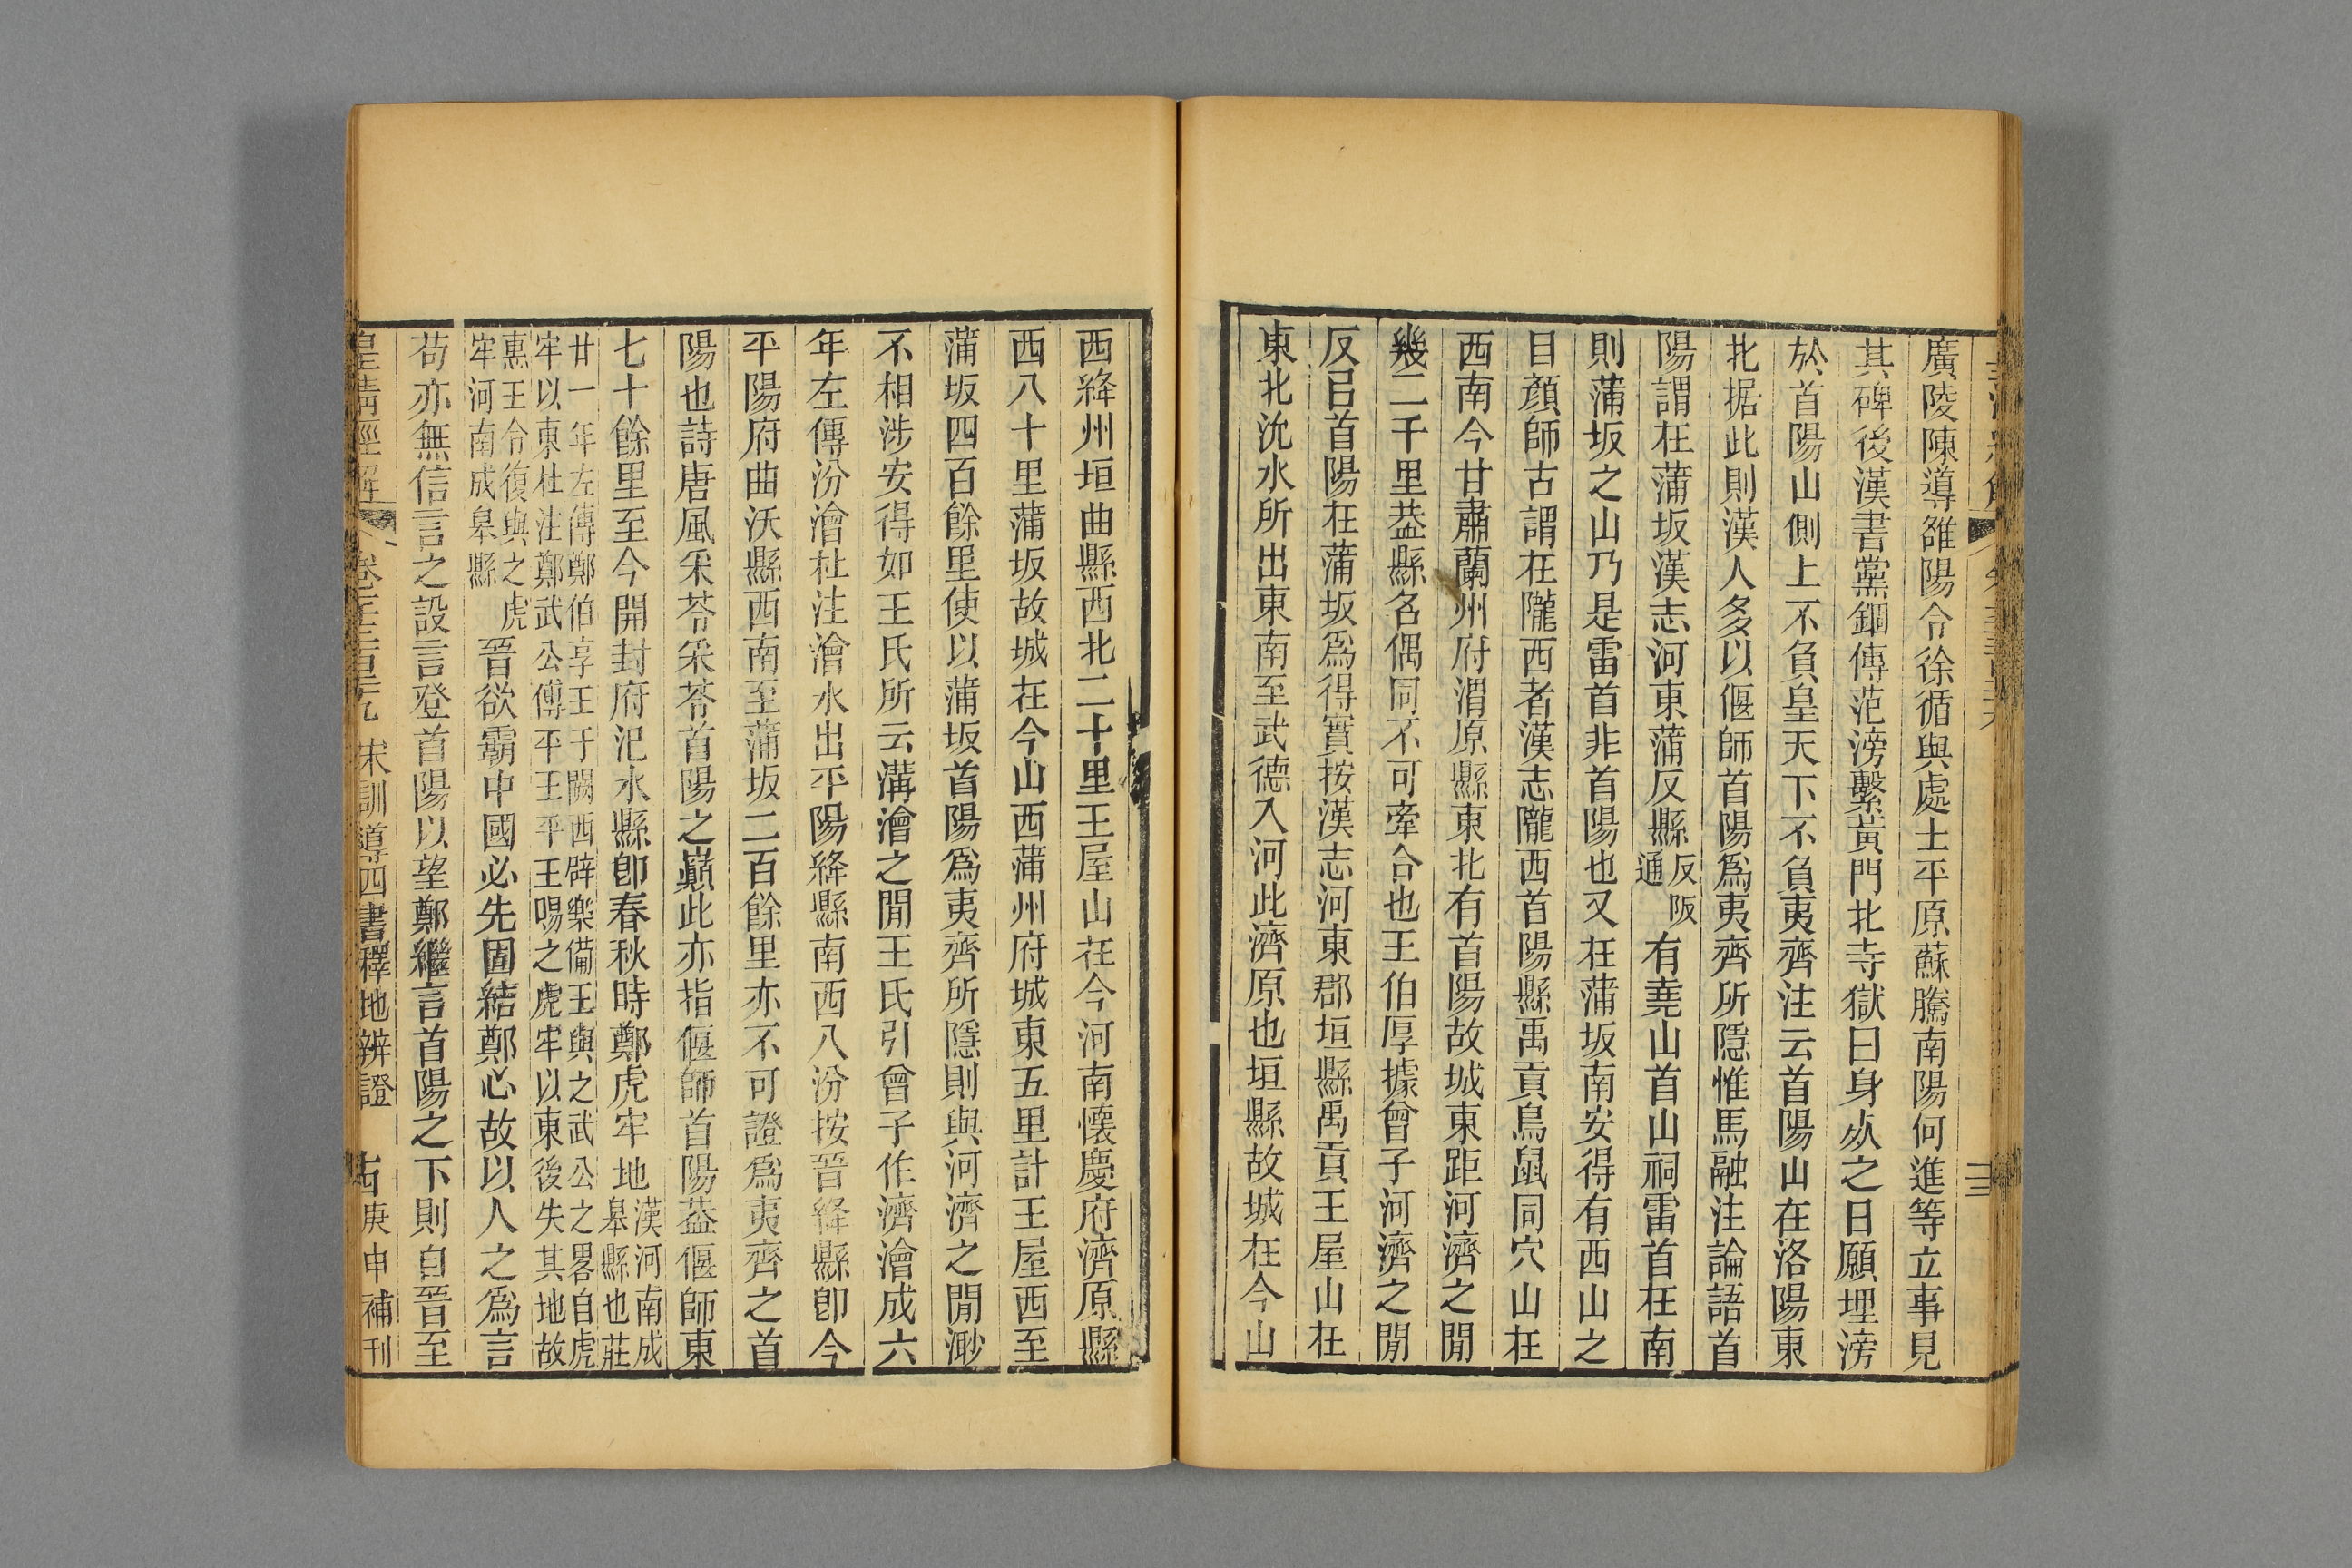 廣陵陳導雒陽令徐循與處士平原蘇騰南陽何進等立事見
其碑後漢書黨錮傳范滂繫黃門北寺獄曰身死之日願埋滂
於首陽山側上不負皇天下不負夷齊注云首陽山在洛陽東
北据此則漢人多以偃師首陽爲夷齊所隱惟馬融注論語首
陽謂在蒲坂漢志河東蒲反縣反阪通有堯山首山祠雷首在南
則蒲坂之山乃是雷首非首陽也又在蒲坂南安得有西山之
目顏師古謂在隴西者漢志隴西首陽縣禹貢鳥鼠同穴山在
西南今甘肅蘭州府渭原縣東北有首陽故城東距河濟之閒
幾二千里葢縣名偶同不可牽合也王伯厚據曾子河濟之閒
反㠯首陽在蒲坂爲得實按漢志河東郡垣縣禹貢王屋山在
東北沇水所出東南至武德入河此濟原也垣縣故城在今山
西絳州垣曲縣西北二十里王屋山在今河南懷慶府濟原縣
西八十里蒲坂故城在今山西蒲州府城東五里計王屋西至
蒲坂四百餘里使以蒲坂首陽爲夷齊所隱則與河濟之閒渺
不相涉安得如王氏所云溝澮之閒王氏引曾子作濟澮成六
年左傳汾澮杜注澮水出平陽絳縣南西入汾按晉絳縣卽今
平陽府曲沃縣西南至蒲坂二百餘里亦不可證爲夷齊之首
陽也詩唐風采苓采苓首陽之巓此亦指偃師首陽葢偃師東
七十餘里至今開封府汜水縣卽春秋時鄭虎牢地漢河南成皋縣也莊
廿一年左傳鄭伯享王于闕西辟樂備王與之武公之畧自虎牢以東杜注鄭武公傅平王平王賜之虎牢以東後失其地故
惠王令復與之虎牢河南成皋縣晉欲霸中國必先固結鄭心故以人之爲言
苟亦無信言之設言登首陽以望鄭繼言首陽之下則自晉至
皇清經解 卷三百三九 宋訓導四書釋地辨證 古 庚申補刊